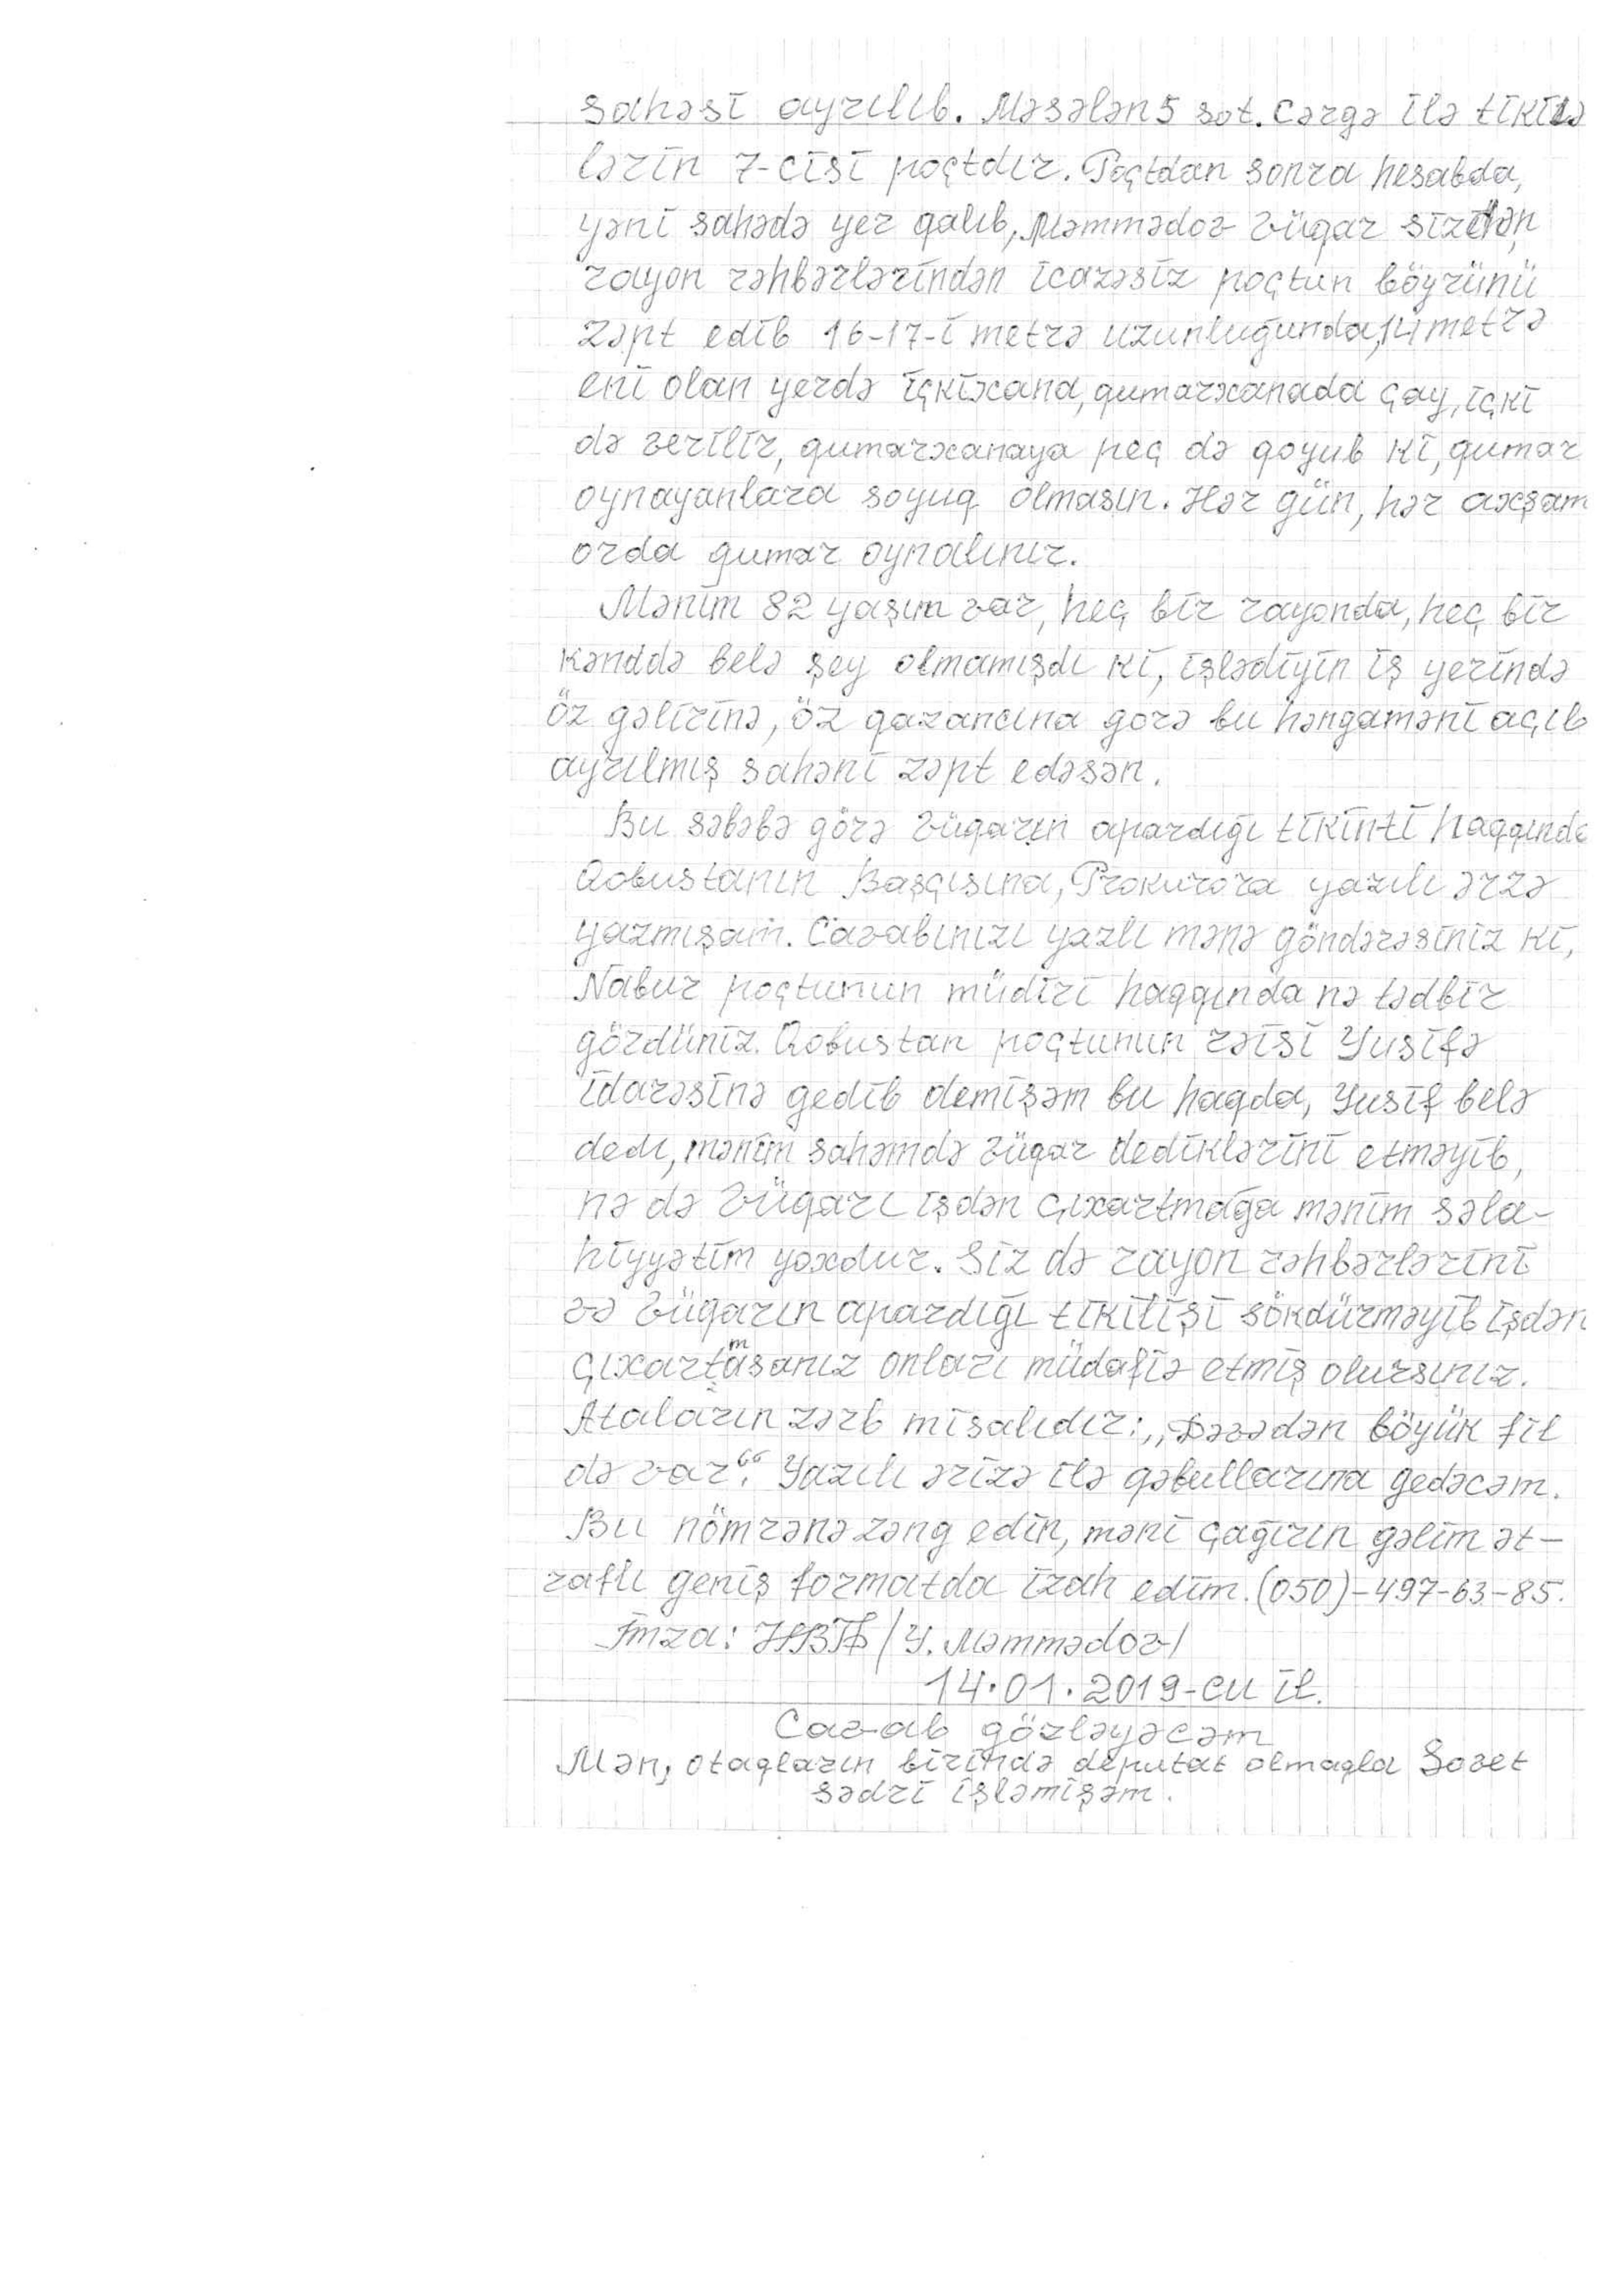 sahəsi ayrılıb. Məsələn 5 sot. Cərgə ilə tikilə
lərin 7-cisi poçtdır. Poçtdan sonra hesabda,
yəni sahədə yer qalıb, Məmmədov Vüqar sizdən,
rayon rəhbərlərindən icazəsiz poçtun böyrünü
zəpt edib 16-17-i metrə uzunluğunda, 14 metrə
eni olan yerdə içkixana, qumarxanada çay, içki
də verilir, qumarxanaya peç də qoyub ki, qumar
oynayanlara soyuq olmasın. Hər gün, hər axşam
orda qumar oynalınır.
Mənim 82 yaşım var, heç bir rayonda, heç bir
kənddə belə şey olmamışdı ki, işlədiyin iş yerində
öz gəlirinə, öz qazancına gorə bu həngaməni açıb
ayrılmış sahəni zəpt edəsən.
Bu səbəbə görə Vüqarın apardığı tikinti haqqında
Qobustanın Başçısına, Prokurora yazılı ərzə
yazmışam. Cavabınızı yazlı mənə göndərəsiniz ki,
Nabur poçtunun müdiri haqqında nə tədbir
gördüniz. Qobustan poçtunun rəisi Yusifə
idarəsinə gedib demişəm bu haqda, Yusif belə
dedi, mənim sahəmdə Vüqar dediklərini etməyib,
nə də Vüqarı işdən çıxartmağa mənim səla-
hiyyətim yoxdur. Siz də rayon rəhbərlərini
və Vüqarın apardığı tikilişi sökdürməyib işdən
çıxartmasanız onları müdafiə etmiş olursınız.
Ataların zərb misalıdır: „Dəvədən böyük fil
də var“. Yazılı ərizə ilə qəbullarına gedəcəm.
Bu nömrənə zəng edin, məni çağırın gəlim ət-
raflı geniş formatda izah edim. (050)-497-63-85.
İmza: /Y. Məmmədov/
14.01.2019-cu il.
Cavab gözləyəcəm
Mən, otaqların birində deputat olmaqla Sovet
sədri işləmişəm.